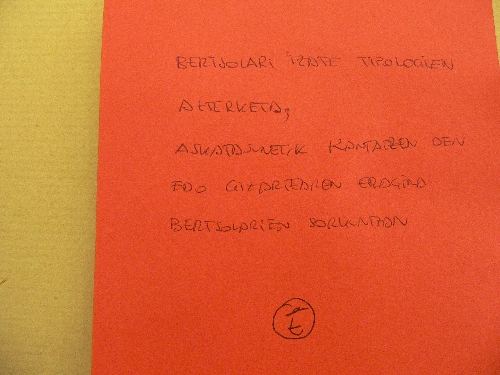 BERTSOLARI IZATE TIPOLOGIEN
AZTERKETA;
ASKATASUNETIK KANTATZEN DEN
EDO GIZARTEAREN ERAGINA
BERTSOLARIEN SORKUNTZAN
E